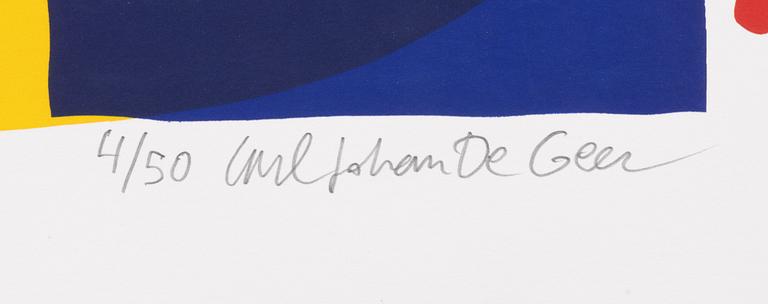 4/50 Carl Johan De Geer